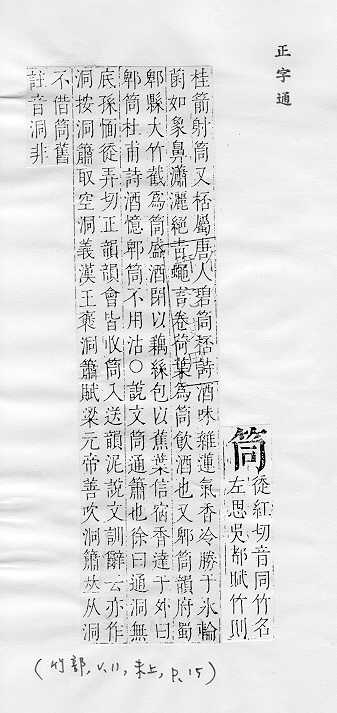 正字通
筒
徒紅切音同竹名
左思吳都賦竹則
桂箭射筒又桮屬唐人碧筒桮詩酒味雜蓮氣香冷勝于氷輪
菊如象鼻瀟灑絕青蠅言卷荷葉為筒飲酒也又郫筒韻府蜀
郫縣大竹截為筒盛酒閉以藕絲包以蕉葉信宿香達于外曰
郫筒杜甫詩酒憶郫筒不用沽○說文筒通簫也徐曰通洞無
底孫愐徒弄切正韻韻會皆收筒入送韻泥說文訓辭云亦作
洞按洞簫取空洞義漢王褒洞簫賦梁元帝善吹洞簫𠀤从洞
不借筒舊
註音洞非
(竹部, v.11, 未上, p.15)